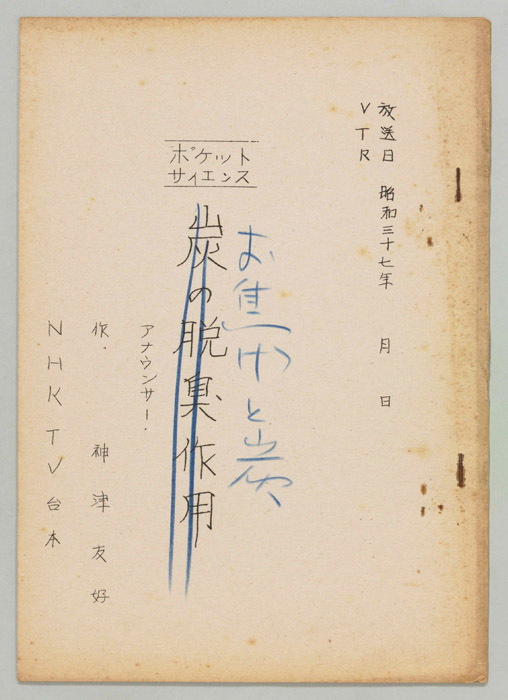 放送日 昭和三十七年 月 日
VTR
ポケット
サイエンス
お焦げと炭
炭の脱臭作用
アナウンサー・
作・ 神津友好
NHKTV台本